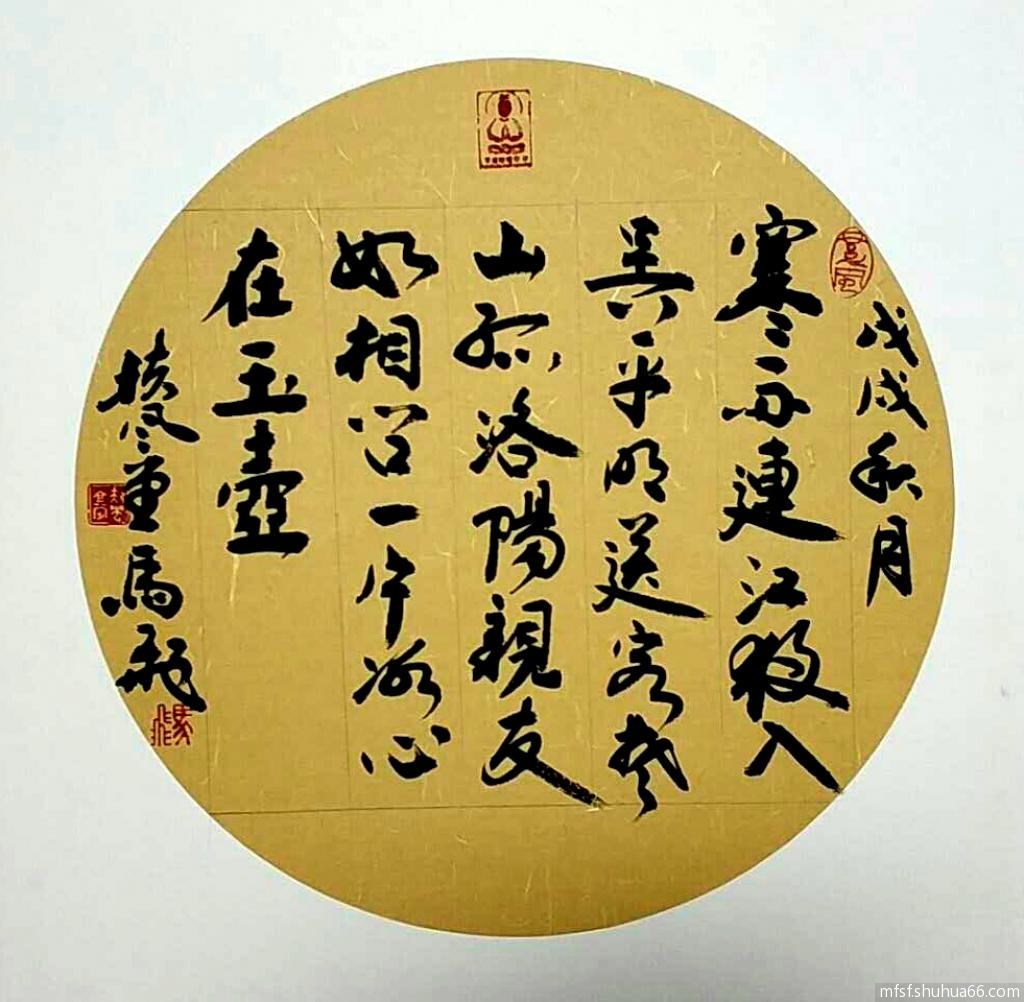 戊戌秋月
寒雨連江夜入
吳平明送客楚
山孤洛陽親友
如相問一片冰心
在玉壺
堂馬飛
mfsf.shuhua66.com